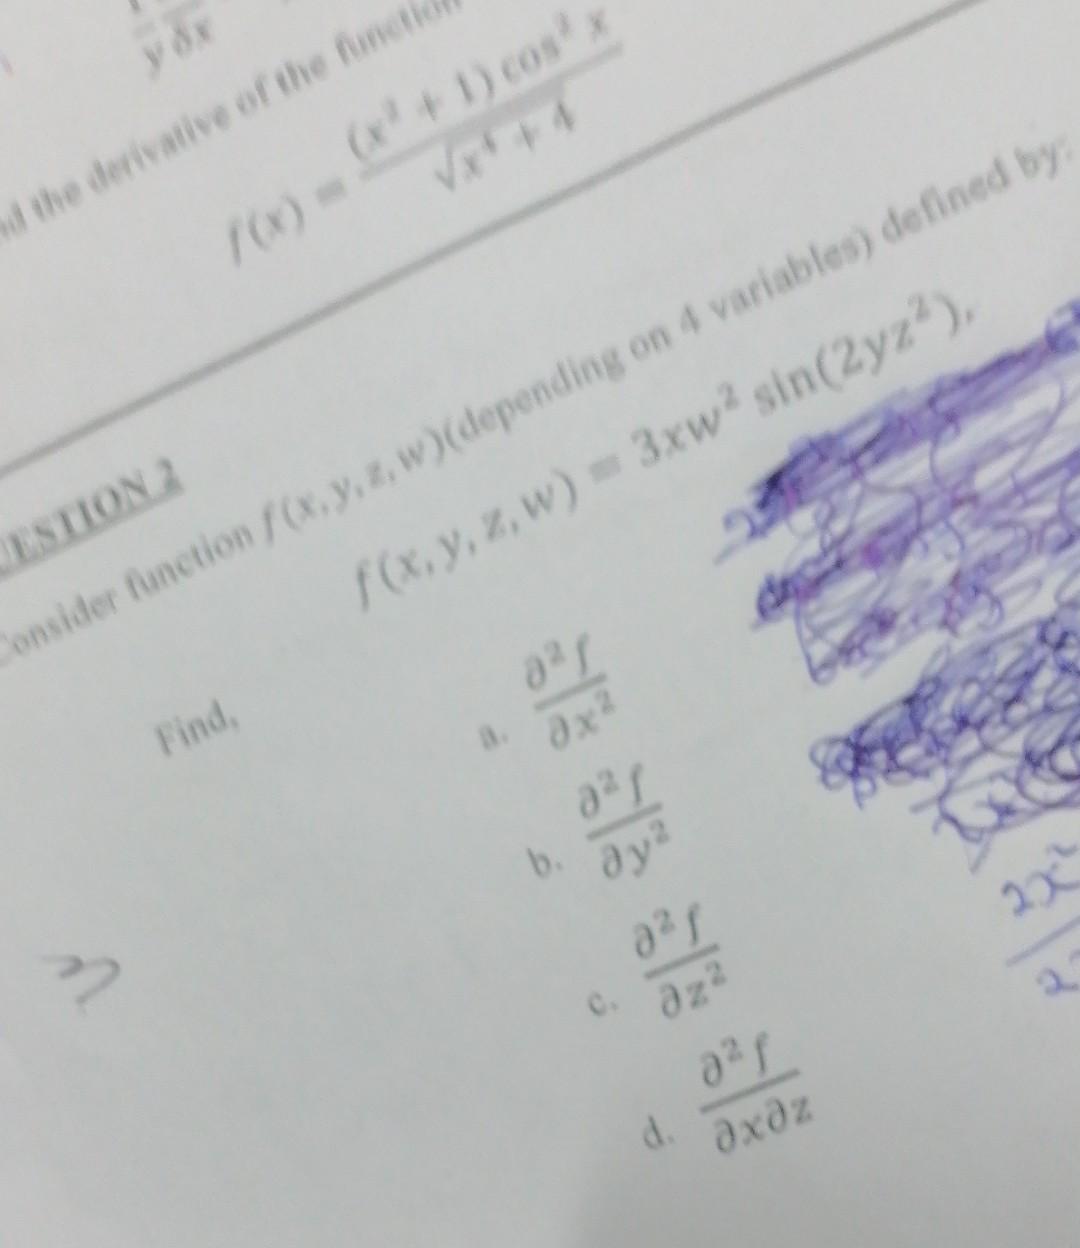 y δx
the derivative of the function
f(x) = (x² + 1) cos² x / √x⁴ + 4
QUESTION 2
Consider function f(x, y, z, w)(depending on 4 variables) defined by:
f(x, y, z, w) = 3xw² sin(2yz²),
Find,
a. ∂²f / ∂x²
b. ∂²f / ∂y²
c. ∂²f / ∂z²
d. ∂²f / ∂x∂z
2x²